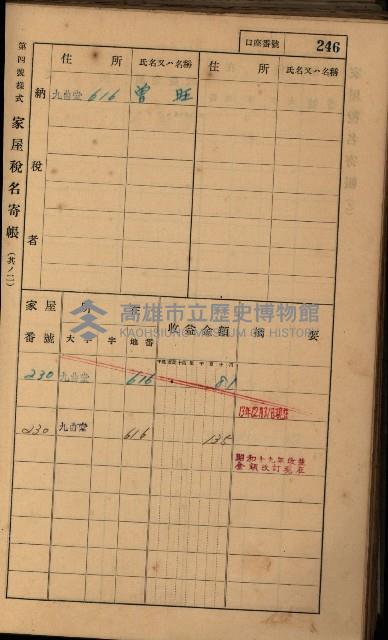 口座番號 246
第四號樣式 家屋稅名寄帳（其ノ二）
納稅者
住所 氏名又ハ名稱 住所 氏名又ハ名稱
九曲堂 616 曾旺
家屋番號 所在 收益金額 摘要
大字 字 地番
230 九曲堂 616 81
230 九曲堂 616 135
昭和十九年收益
金額改訂現在
高雄市立歷史博物館
KAOHSIUNG MUSEUM OF HISTORY